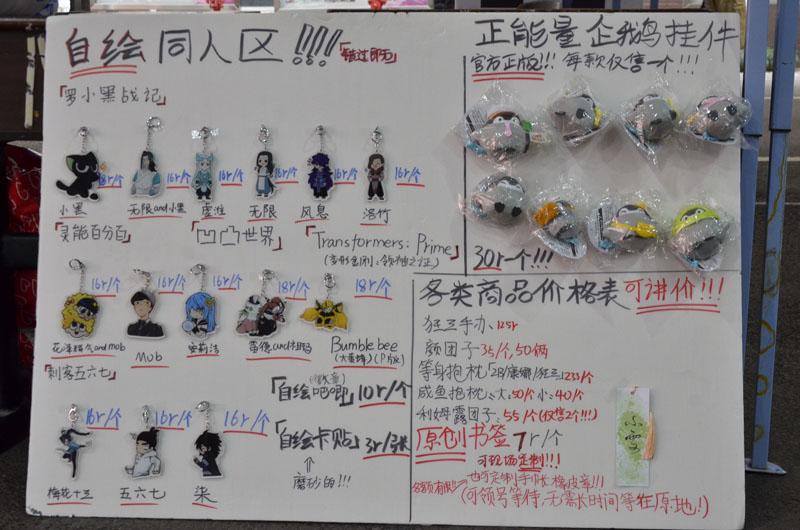 自绘同人区!!!!「错过即无」
「罗小黑战记」
18r/个 16r/个 16r/个 16r/个 16r/个 16r/个
小黑 无限and小黑 虚淮 无限 风息 洛竹
「灵能百分百」 「凹凸世界」 「Transformers: Prime」
(变形金刚:领袖之证)
16r/个 16r/个 16r/个 18r/个 18r/个
花泽辉气and mob Mob 安莉洁 雷德and祖玛 Bumblebee
(大黄蜂)(P版)
「刺客五六七」
16r/个 16r/个 16r/个
梅花十三 五六七 柒
「自绘吧唧」10r/个
「自绘卡贴」3r/张
磨砂的!!!
正能量企鹅挂件
官方正版!!! 每款仅售一个!!!
30r一个!!!
各类商品价格表 可讲价!!!
狂三手办:125r
颜团子35/个,50俩
等身抱枕「2B/康娜/狂三」233/个
咸鱼抱枕:大:50个小:40个
利姆露团子:55/个(仅售2个!!!)
原创书签7r/个
可现场定制!!!
也可定制手帐橡皮章!!!
(可领号等待,无需长时间等在原地!)
小雪